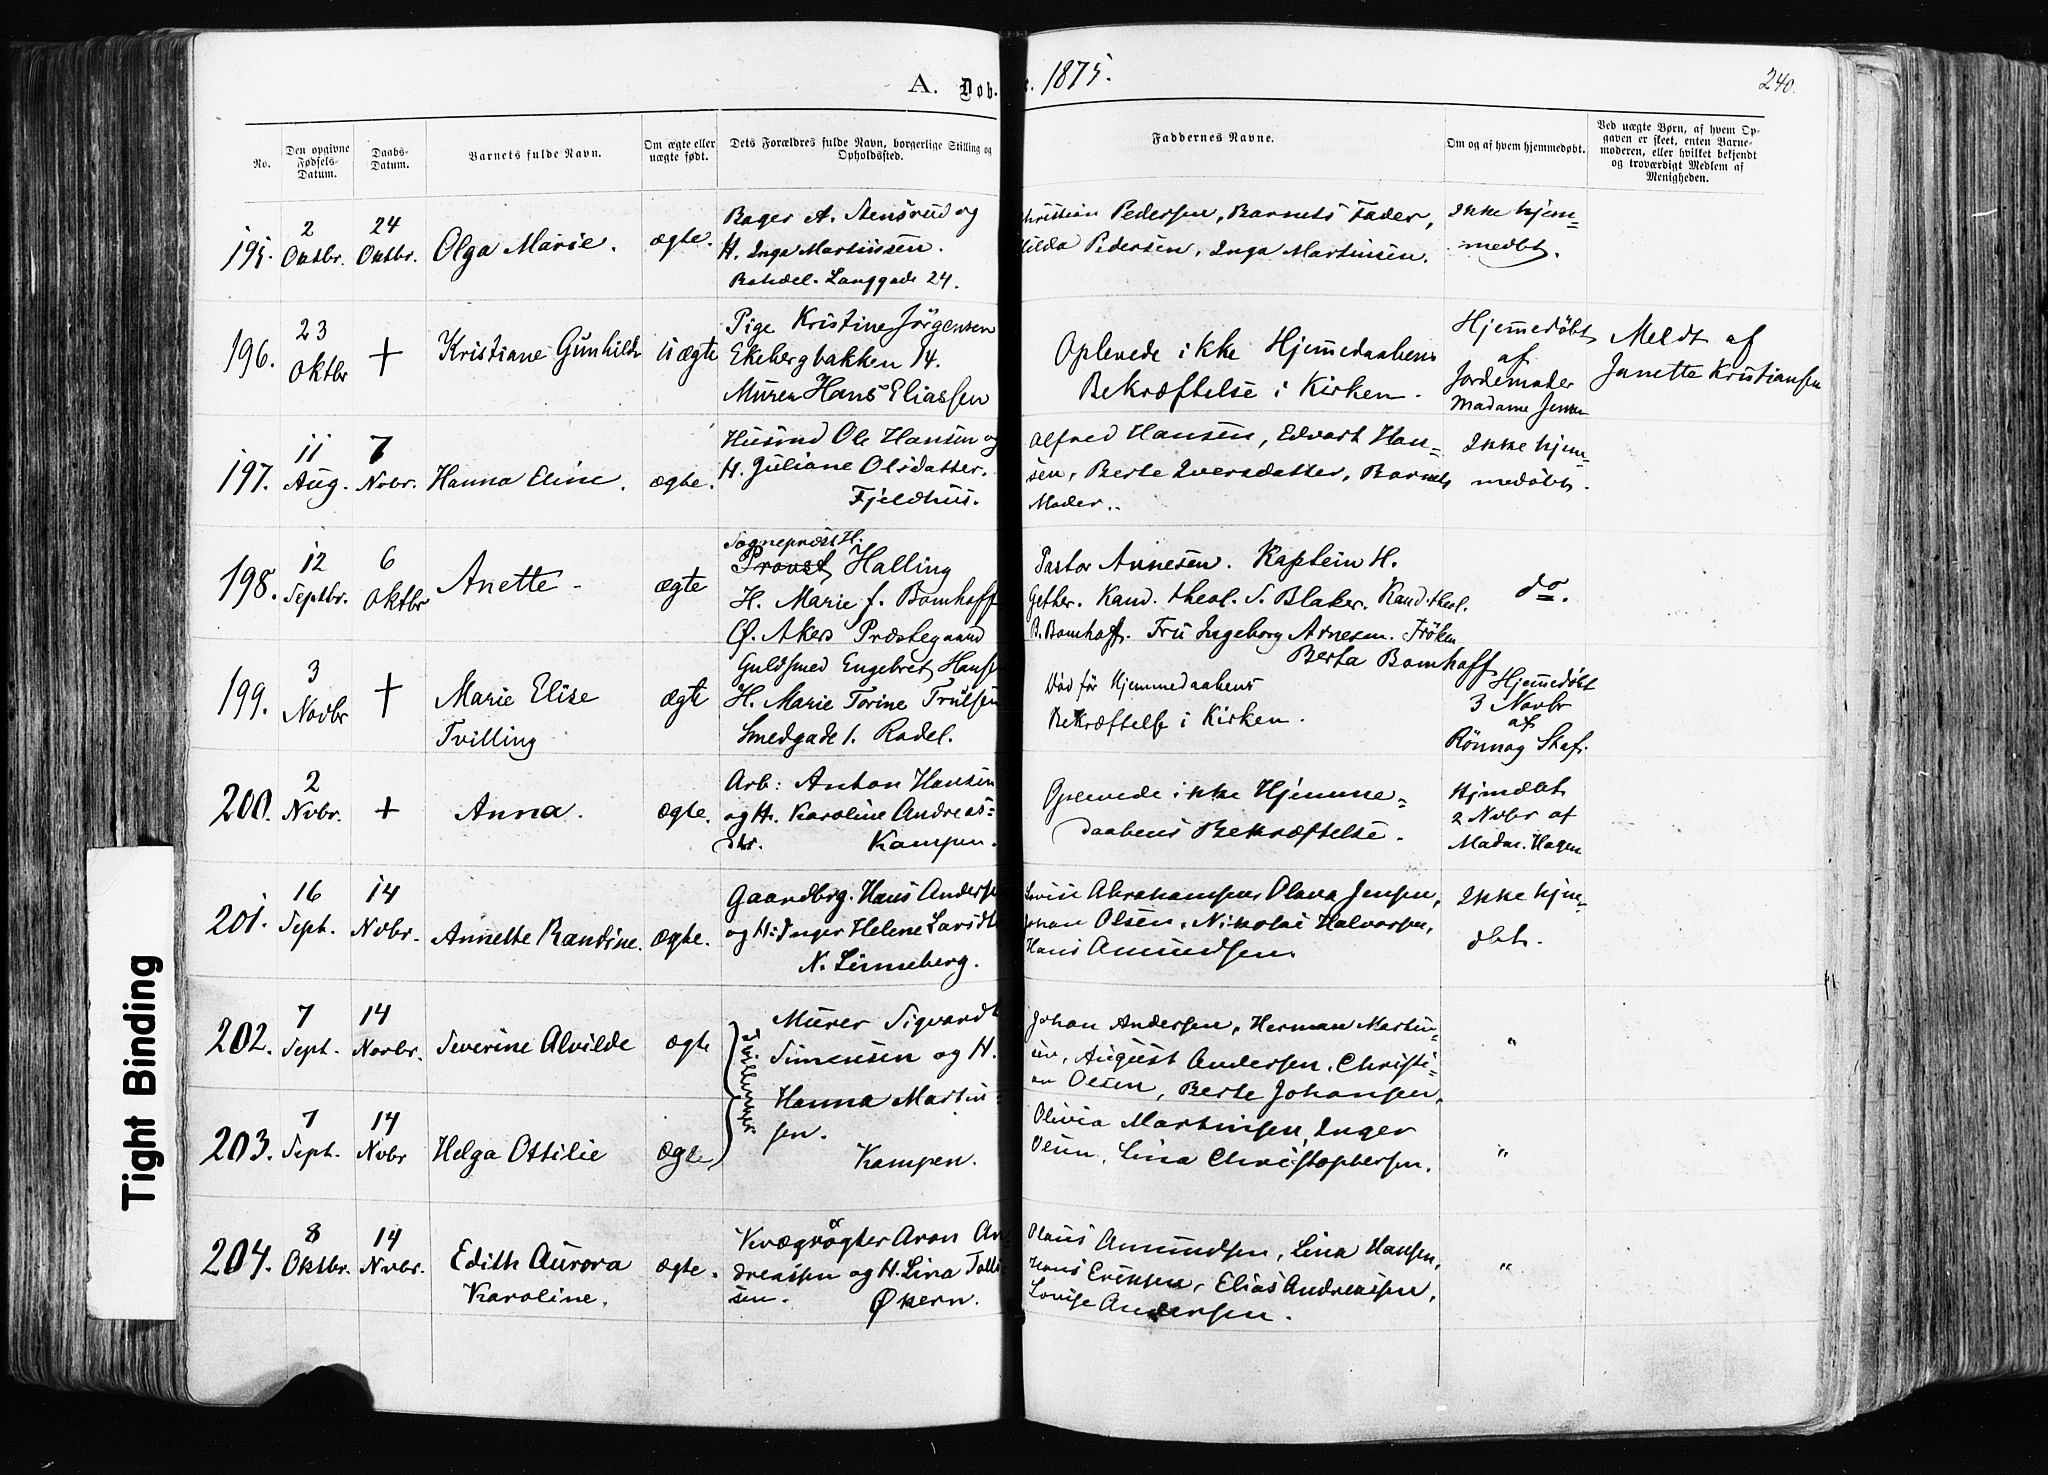 A. Døb. 1875.
240.
No.
Den opgivne Fødsels-Datum.
Daabs-Datum.
Barnets fulde Navn.
Om ægte eller uægte født.
Dets Forældres fulde Navn, borgerlige Stilling og Opholdssted.
Faddernes Navne.
Om og af hvem hjemmedøbt.
Ved uægte Børn, af hvem Opgaven er skeet, enten Barnemoderen, eller hvilket bekjendt og troværdigt Medlem af Menigheden.
195.
2 Oktbr.
24 Oktbr.
Olga Marie.
ægte.
Bager A. Stensrud og
H. Inga Martinsen.
Langgade 24.
Christian Pedersen, Barnets Fader,
Hilda Pedersen, Inga Martinsen.
Ikke hjem=
medbt.
196.
23 Oktbr
+
Kristiane Gunhilde
uægte
Pige Kristine Jörgensen
Ekebergbakken 14.
Murer Hans Eliassen
Oplevede ikke Hjemmedaabens
Bekræftelse i Kirken.
Hjemmedöbt
af
Jordemoder
Madame Jensen
Meldt af
Janette Kristiansen
197.
11 Aug.
7 Novbr.
Hanna Eline.
ægte.
Husmd Ole Hansen og
H. Juliane Olsdatter.
Fjeldhus.
Alfred Hansen, Edvart Han=
sen, Berte Iversdatter, Barnets
Moder.
Ikke hjem=
medøbt.
198.
12 Septbr.
6 Oktbr
Anette
ægte
Sognepræst H.
Provst Halling
H. Marie f. Bomhoff
Ø. Akers Præstegaard
Pastor Arnesen. Kaptein H.
Gether. Kand. theol. S. Blaker. Kand. theol.
B. Bomhoff. Fru Ingeborg Arnesen. Fröken
Berta Bomhoff
do.
199.
3 Novbr
+
Marie Elise
Tvilling
ægte
Guldsmed Engebret Hans
H. Marie Torine Trulsen
Smedgade 1. Rodel.
Död för Hjemmedaabens
Bekræftelse i Kirken.
Hjemmedöbt
3 Novbr
af
Rönnog Staf.
200.
2 Nvbr.
+
Anna.
ægte.
Arb: Anton Hansen
og H. Karoline Andreas=
dtr. Kampen.
Oplevede ikke Hjemme=
daabens Bekræftelse.
Hjmdbt
2 Nvbr af
Madm. Hagen
201.
16 Sept.
14 Nvbr.
Annette Randine.
ægte.
Gaardbrg. Hans Anders
og H. Inger Helene Larsdt
N. Linneberg.
Lovise Abrahamsen, Olava Jensen,
Johan Olsen, Nikolai Halvorsen,
Hans Amundsen.
Ikke hjm=
dbt.
202.
7 Sept.
14 Novbr.
Severine Alvilde
ægte
Tvillinger
Murer Sigvardt
Simensen og H.
Hanna Martin=
sen.
Kampen.
Johan Andersen, Herman Martin=
sen, August Andersen, Christi=
an Olsen, Berte Johansen,
"
203.
7 Sept.
14 Nvbr
Helga Ottilie
ægte
Olivia Martinsen, Inger
Olsen, Lina Christophersen.
"
204.
8 Oktbr.
14 Nvbr.
Edith Aurora
Karoline.
ægte.
Kvægrøgter Aron An
dreassen og H. Lina Tolli
sen. Økern.
Olaus Amundsen, Lina Hansen,
Hans Eriksen, Elias Andreassen,
Lovise Andersen.
"
Tight Binding